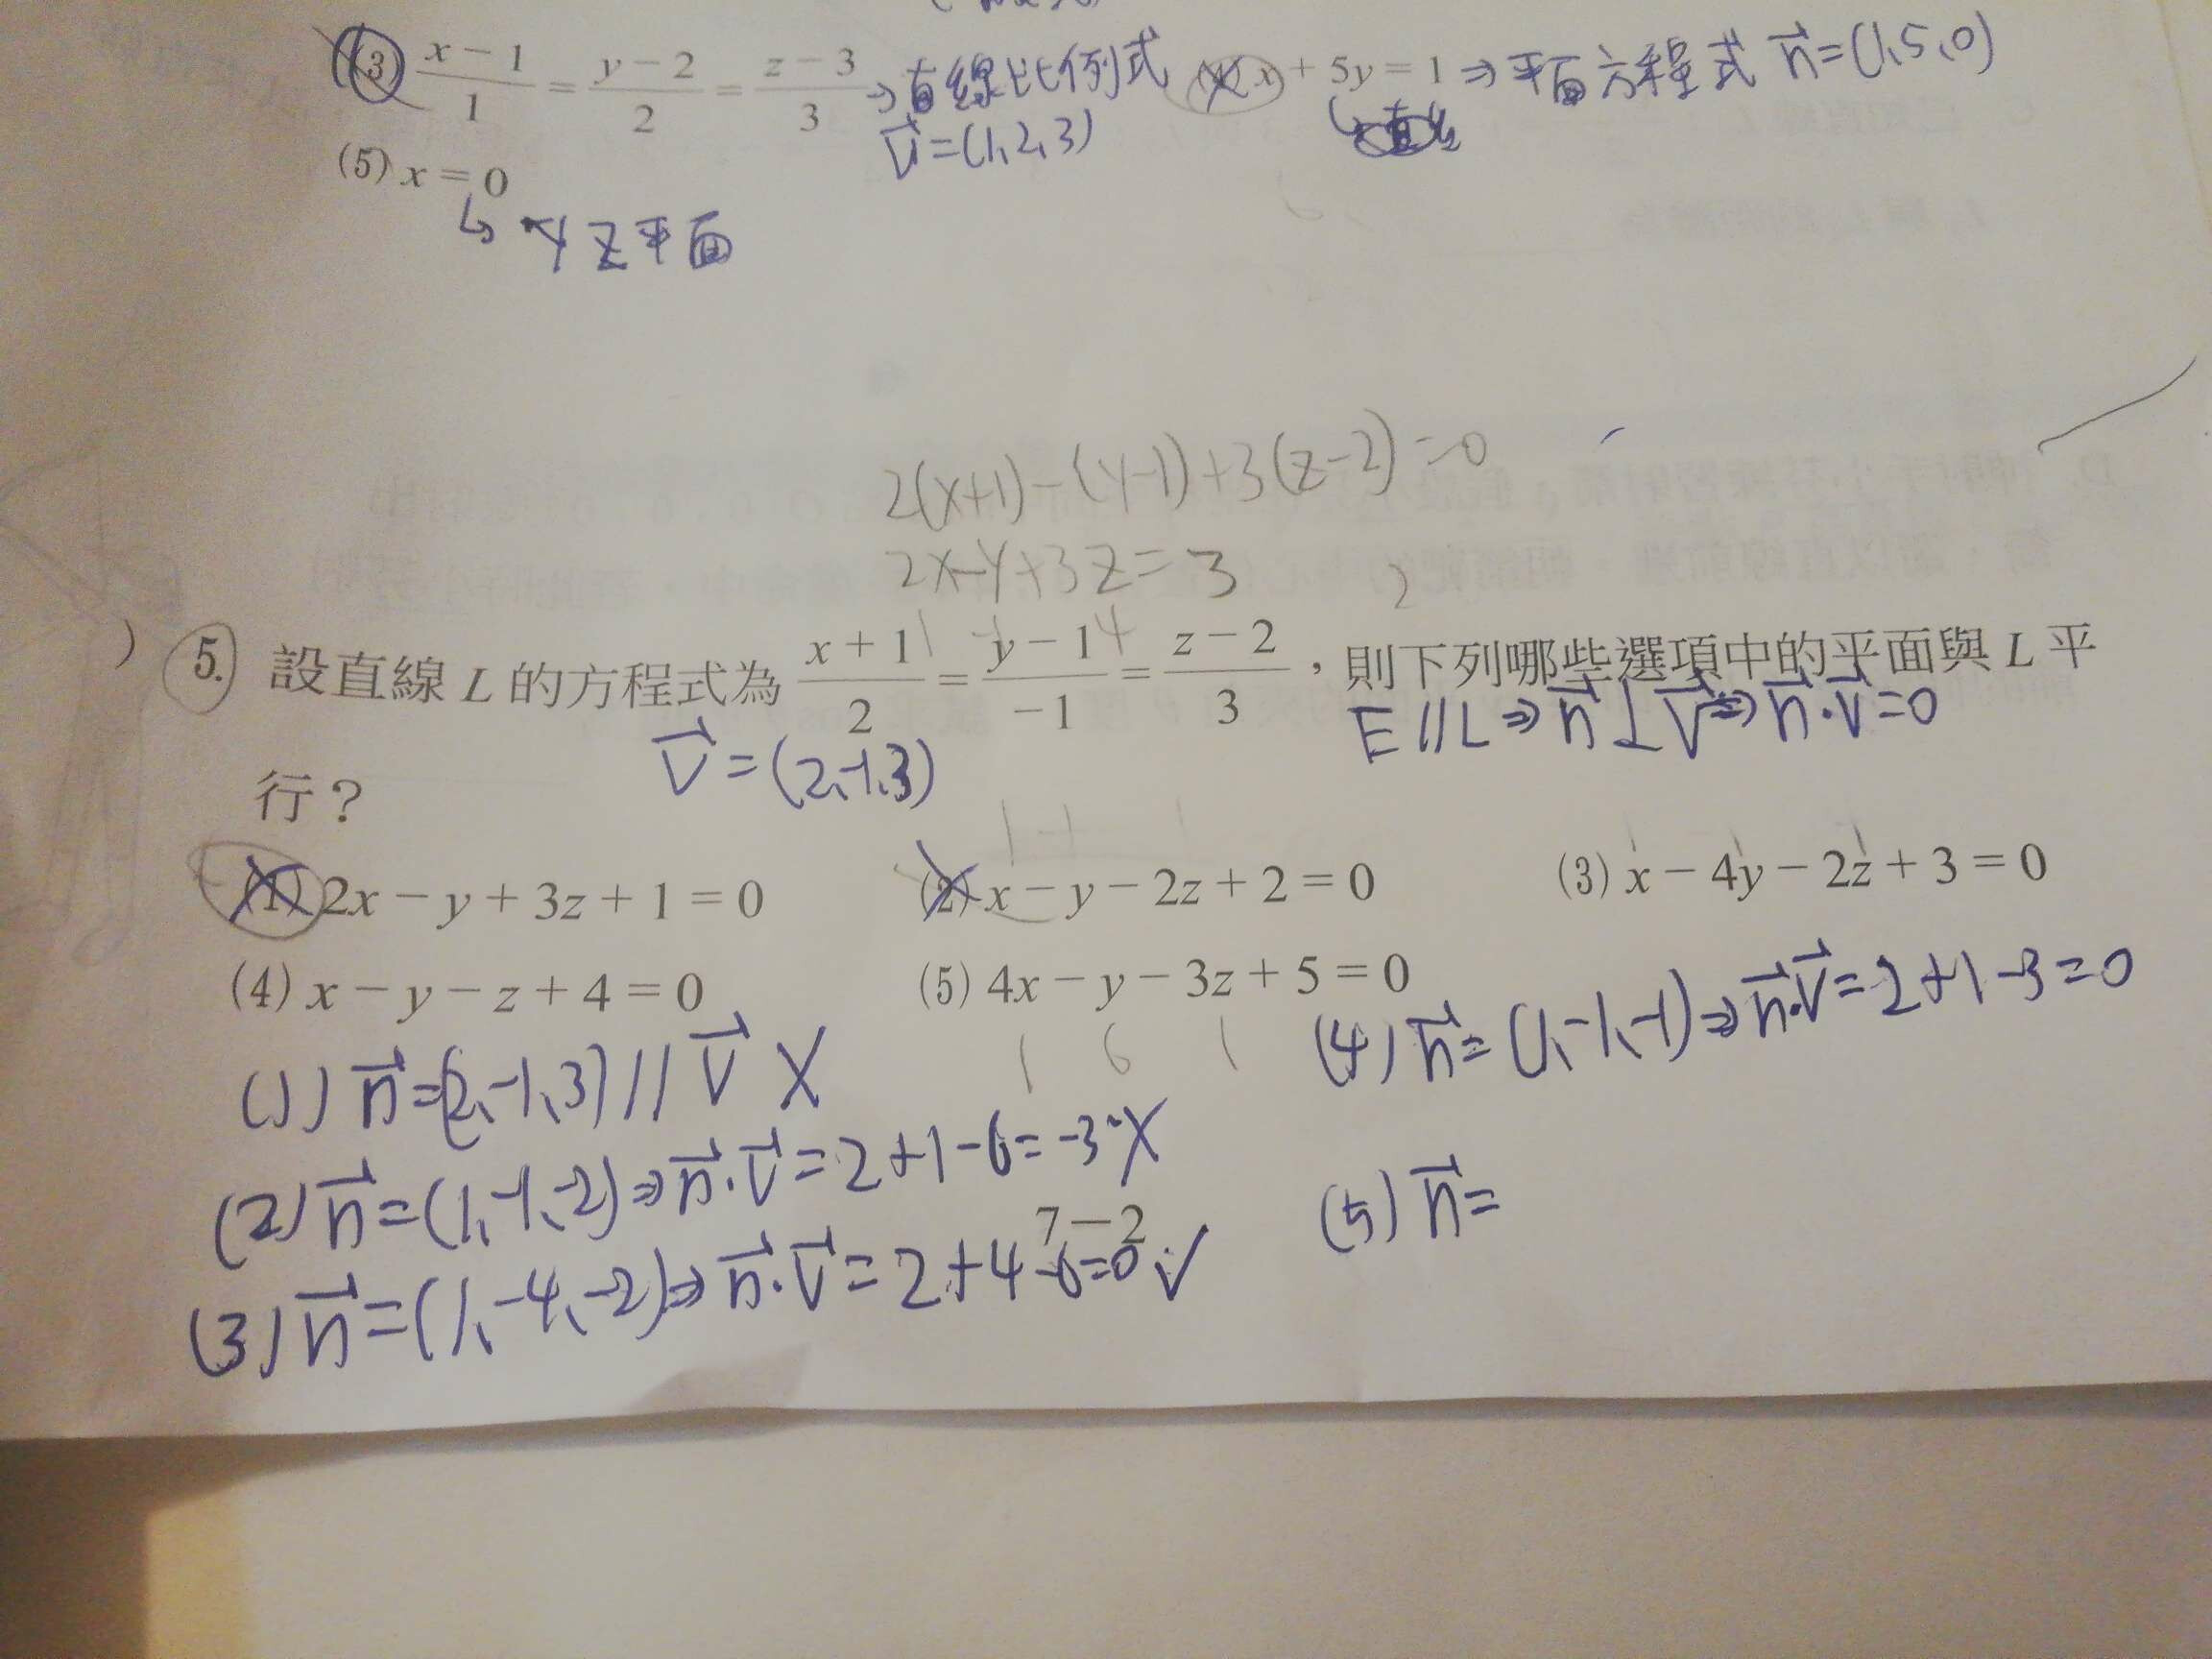 (3) x－1/1 = y－2/2 = z－3/3 ⇒直線比例式 V⃗=(1,2,3)
(4) x + 5y = 1 ⇒平面方程式 n⃗=(1,5,0)
(5) x = 0
↳ YZ平面
2(x+1)-(y-1)+3(z-2)=0
2x-y+3z=3
2
5. 設直線 L 的方程式為 x+1/2 = y－1/-1 = z－2/3，則下列哪些選項中的平面與 L 平
E//L⇒n⃗⊥V⃗⇒n⃗·V⃗=0
行？ V⃗=(2,-1,3)
(1) 2x－y＋3z＋1＝0 (2) x－y－2z＋2＝0 (3) x－4y－2z＋3＝0
(4) x－y－z＋4＝0 (5) 4x－y－3z＋5＝0
1 6 1
(1) n⃗=(2,-1,3)//V⃗ X
(2) n⃗=(1,-1,-2)⇒n⃗·V⃗=2+1-6=-3 X
(3) n⃗=(1,-4,-2)⇒n⃗·V⃗=2+4-6=0 ✓
7－2
(4) n⃗=(1,-1,-1)⇒n⃗·V⃗=2+1-3=0
(5) n⃗=